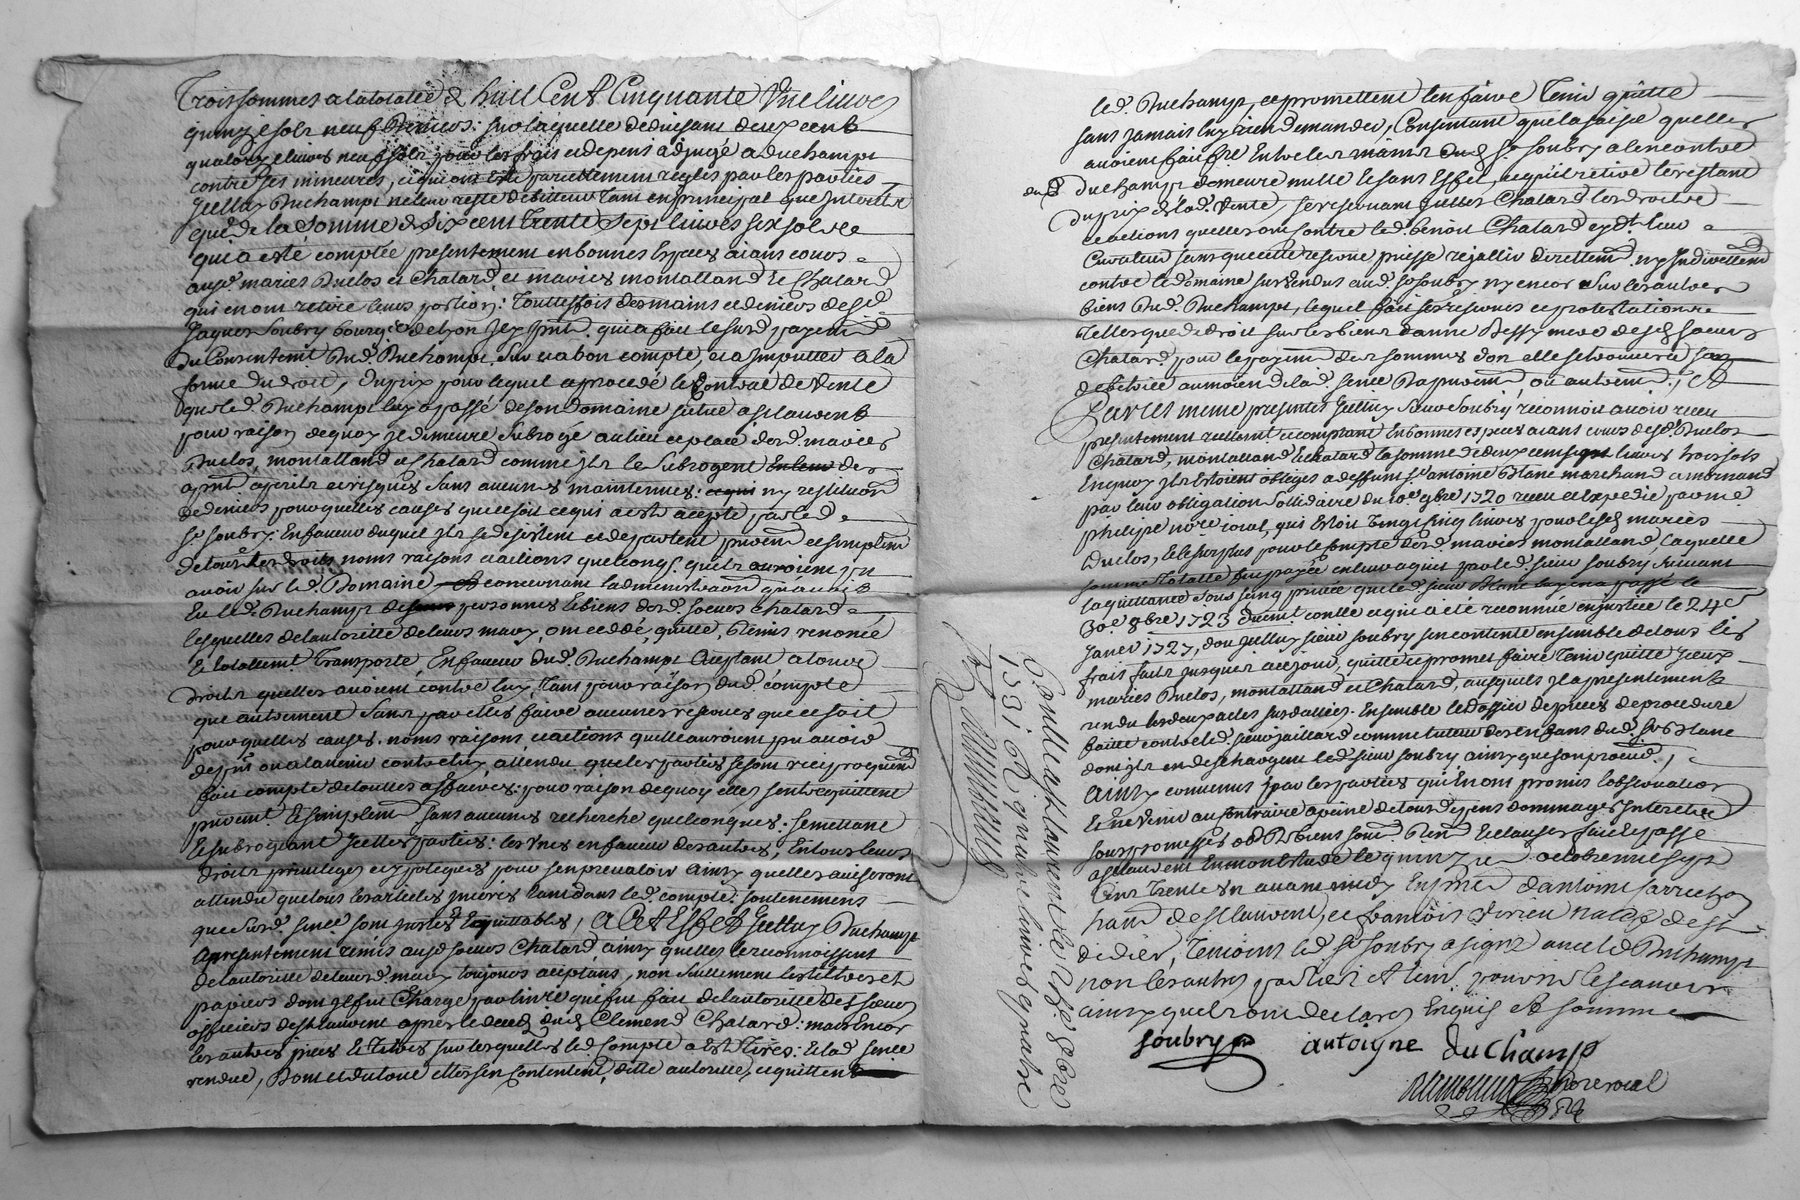 Trois sommes a la totalle de huit Cent Cinquante Une livres
quinze sols neuf deniers: sur laquelle deduisant deux cent
quatorze livres neuf sols pour les frais et depens adjugé a duchamps
contre les mineures, ce qui ont été pareillement reglés par les parties
Jcelluy Duchamps ne leur reste debitteur tant en principal que Interetz
que de la somme de Six cent trente Sept livres six sols
qui a esté comptée presentement en bonnes especes aians cours
ausd. mariés Duclos et Chatard, et mariés montalland et Chatard
qui en ont retiré leurs portion: Touttesfois des mains et deniers de sr.
Jaques Soubry bourgeois de Lyon Jcy pnt. qui a fait le susd. payemt.
du Consentemt. dud. Duchamps, sur et a bon compte, et a Imputter a la
forme du droit, du prix pour lequel a procedé le Contrat de Vente
que led. Duchamps luy a passé de son Domaine situé a st laurent
pour raison de quoy Jl demeure Subrogé au lieu et place desd. mariés
Duclos, montalland et Chatard comme Jls le Subrogent des
apnt. a perils et risques sans aucunes maintenues: ny restitution
de deniers pour quelles causes que ce soit ce qui a esté accepté par led.
sr. Soubry. En faveur duquel Jls se desistent et departent purement et simplemt.
de tous les droits noms raisons et actions quelconqs. qu'ils auroient pu
avoir sur led. Domaine concernant l'administration qu'avait
Eu led. Duchamps des personnes et biens desd. soeurs Chatard
lesquelles de l'autorité de leurs maris, ont ceddé, quitté, remis renoncé
et totallemt. Transporté, En faveur dud. Duchamps aceptant a tous
droits quelles avoient contre luy, tant pour raison dud. compte
que autrement sans par elles faire aucunes reserves que ce soit
pour quelles causes, noms raisons, et actions quelles auroient pu avoir
depuis ou a l'avenir contre luy, attendu que les parties se sont reciproquemt.
fait compte de touttes affaires: pour raison de quoy elles s'entrequittent
puremt. Et simplemt. sans aucunes recherche quelconques: se mettant
Et subrogeant Jcelles parties: les unes en faveur des autres, En tous leurs
droits privileges et ypoteques pour s'en prevaloir ainsy quelles aviseront
attendu que tous les articles Inserés tant dans led. compte: soutenements
que susd. sence sont justes et equittables, A CET EFFET Jcelluy Duchamps
a presentement remis ausd. soeurs Chatard, ainsy quelles le reconnoissent
de l'autorité de leursd. maris toujours aceptans, non seullement les tiltres et
papiers dont Jl fut Chargé par l'inre. qui fut fait de l'autorité des sieurs
officiers de st laurent apres le deceds dud. Clement Chatard: mais Encor
les autres pieces Et Titres sur lesquelles led. compte a esté Tirés: Et lad. sence
rendue, Dont et du tout elles s'en contentent, ditte autorité, et quittent
led. Duchamps, et promettent l'en faire Tenir quitte
sans jamais luy rien demander, Consentant que la saisie quelles
avoient fait fre. Entre les mains dud. sr. Soubry a l'encontre
dud. duchamps demeure nulle Et sans Effet, et qu'il retire le restant
du prix de lad. Vente, se reservant Jcelles Chatard les droits
et actions quelles ont contre led. benoit Chatard cydt. leur
Curateur sans que cette reserve puisse rejallir directemt. ny Indirectemt.
contre le domaine sus vendus aud. sr. Soubry ny encor sur les autres
biens dud. Duchamps, lequel fait ses reserves et protestations
telles que de droit sur les biens danne Dessy mere desd. soeurs
Chatard pour le payemt. des sommes dont elle se trouvera
debitrice au moien de lad. sence Dapurement ou autremt., Et
Par ces meme presentes Jcelluy sieur Soubry reconnoit avoir receu
presentement reellemt. et comptant En bonnes especes aians cours desd. Duclos
Chatard, montalland Et chatard la somme de deux cent livres trois sols
Enquoy Jls Estoient obligés a deffunt sr. antoine Blanc marchand a mornand
par leur obligation Sollidaire du 10e. 9bre 1720 receu et expedié par me.
philipe nore. roial, qui Estoit vingt cinq livres pour lesd. mariés
Duclos, Et le surplus pour le compte desd. mariés montalland, laquelle
somme Totalle fut payée en leur aquit par led. sieur Soubry suivant
la quittance sous seing privée que led. sieur Blanc luy en a passé le
30e. 9bre 1723 duemt. conllé et qui a été reconnüe en justice le 24e.
Janer. 1727, dont Jcelluy sieur Soubry s'en contente ensemble de tous les
frais faits jusques a ce jour, quitte et promet faire tenir quitte Jceux
mariés Duclos, montalland et Chatard, ausquels Jl a presentement
rendu les deux actes susdattées. Ensemble le dossier de pieces de procedure
faitte contre led. sieur Jaillard comme tuteur des enfans dud. sr. Blanc
dont Jls en deschargent led. sieur Soubry ainsy que son procur.,
Ainsy convenus par les parties qui En ont promis l'observation
Et ne venir au contraire a peine de tous depens dommages Interetz
sous promesses ob. de biens soum. renon. Et clauses fait Et passé
a st laurent En mon etude le quinzie. octobre mil sept
Cent trente un avant midy En pnce. d'antoine sarrechon
hant. de st laurent, et francois Virieu natif de st
didier, Temoins led. sr. Soubry a signé avec led. Duchamps
non les autres parties et tem. pour ne le scavoir
ainsy quils ont declares Enquis et sommé
Soubry antoigne duchamp
nore roial
Conllé a st laurent le 22e. 8bre
1731 Rt quatre livres quatre